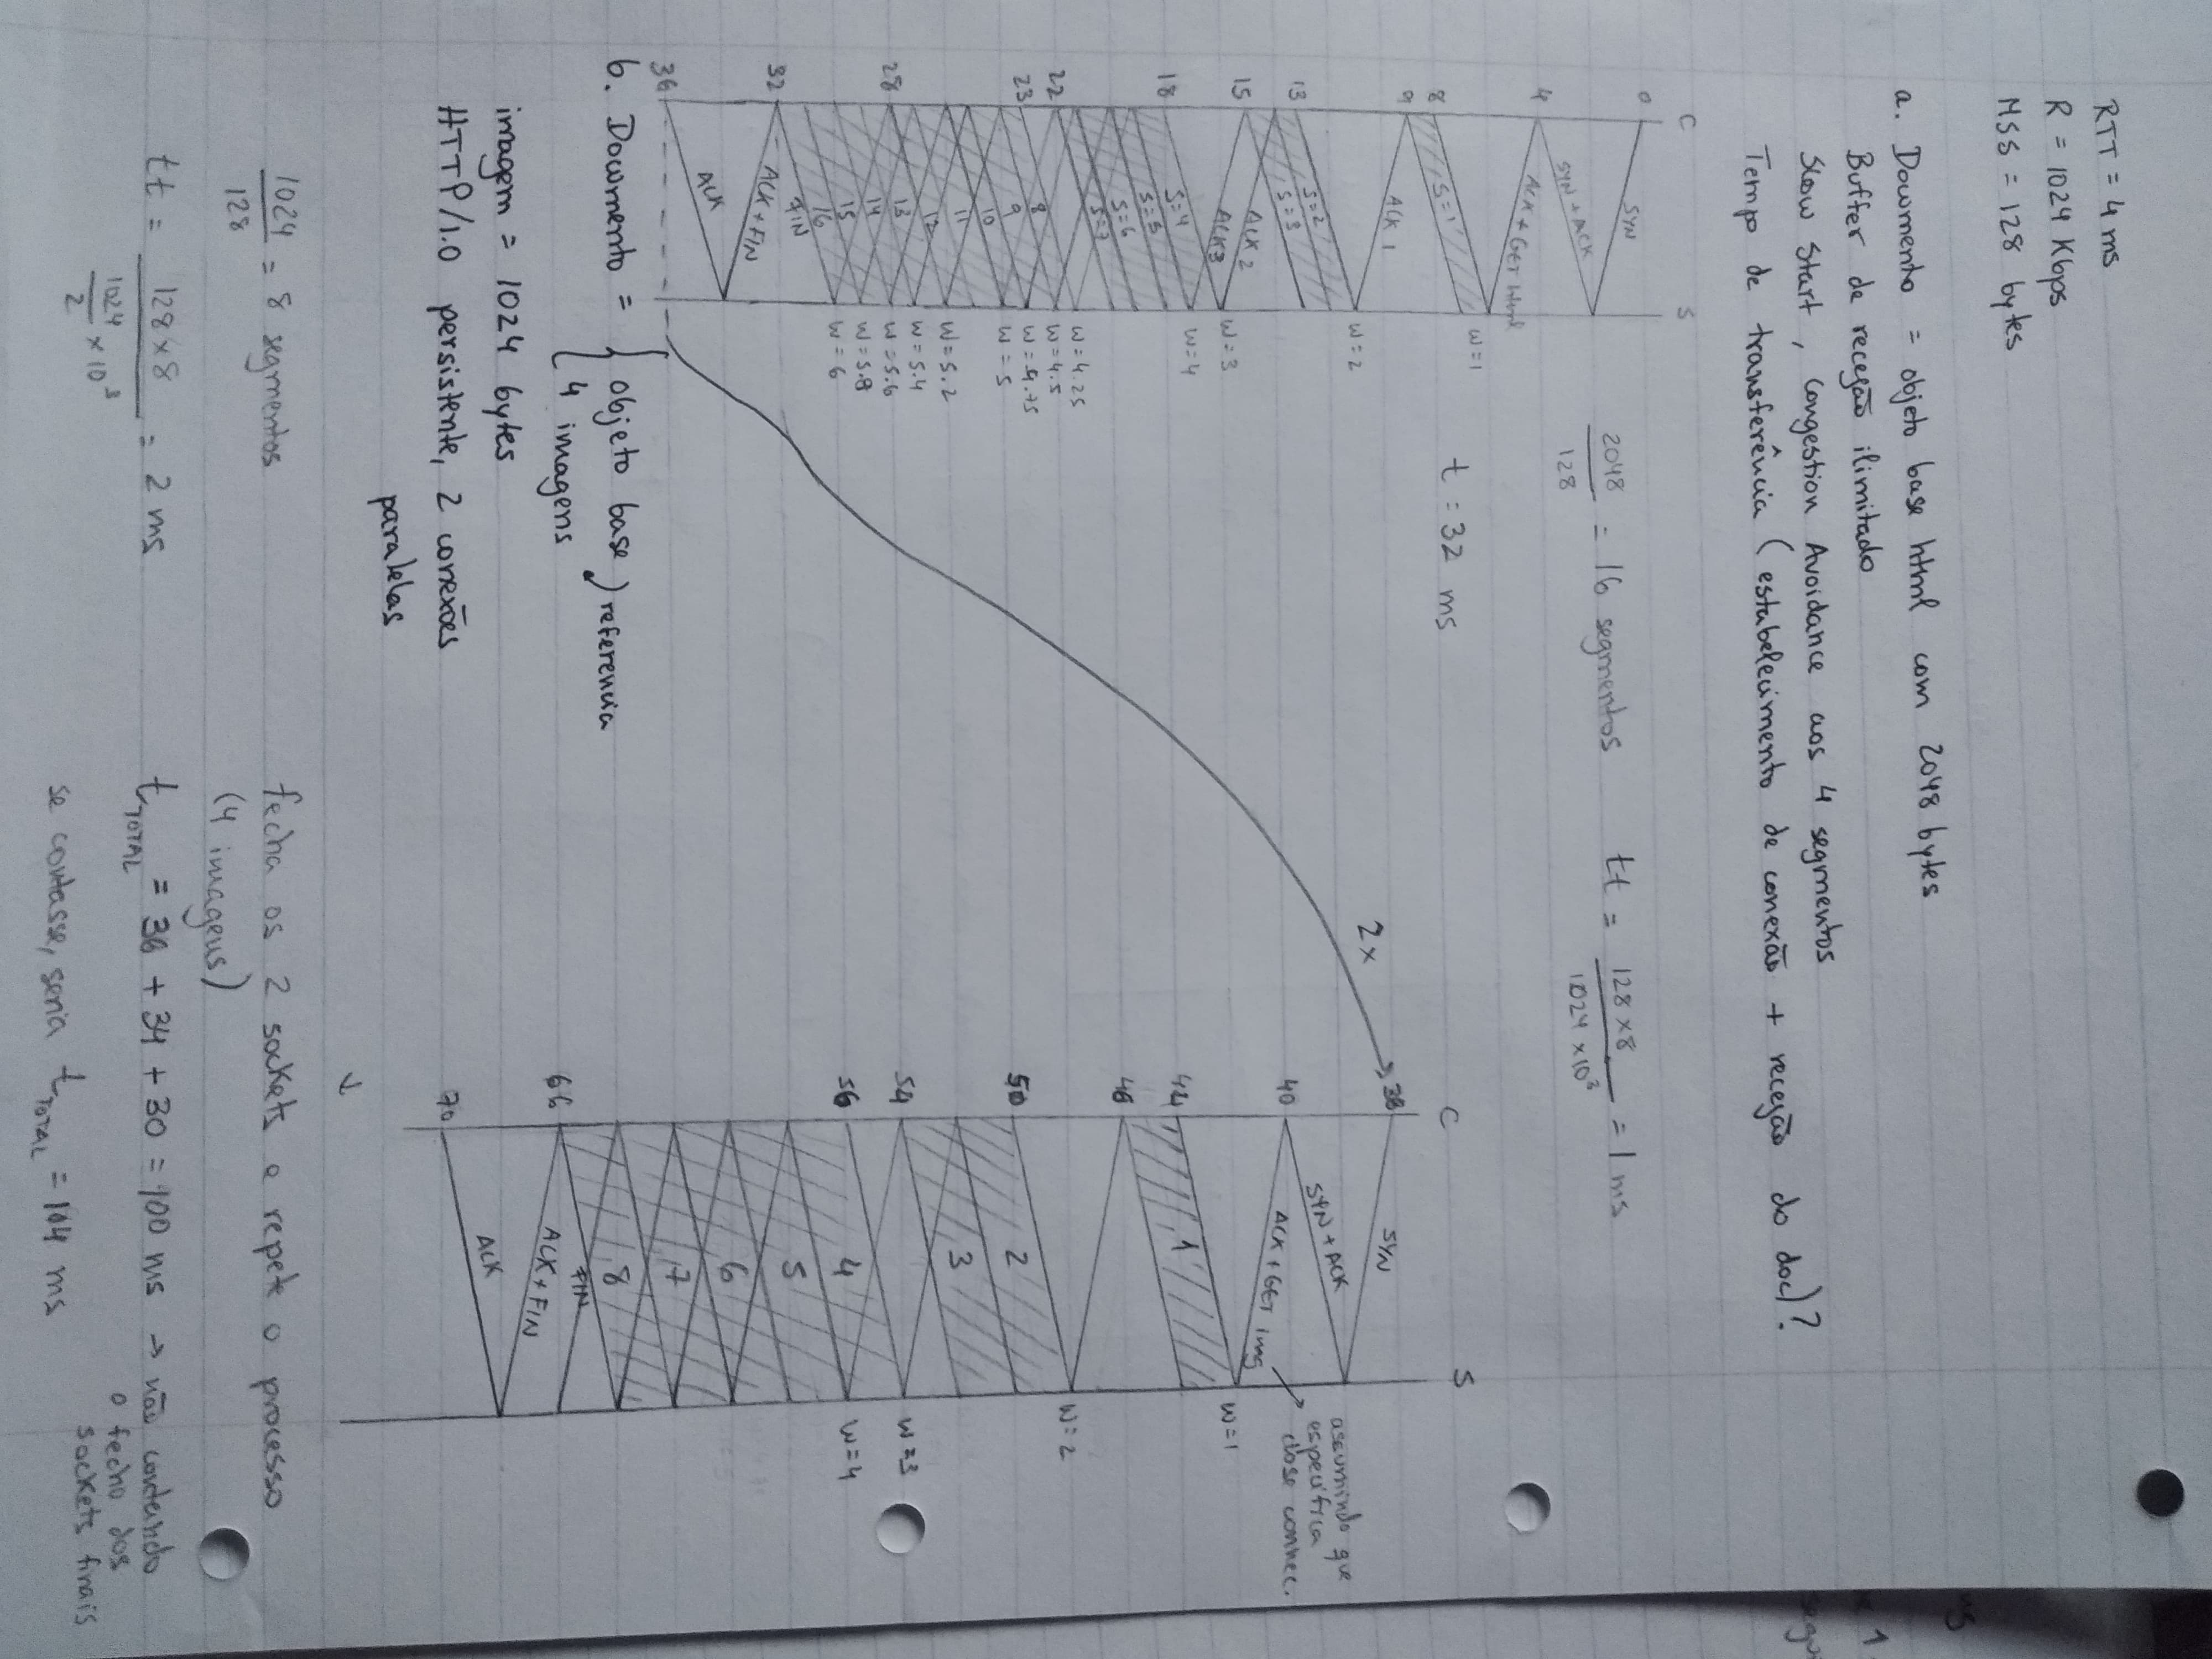 RTT = 4 ms
R = 1024 Kbps
MSS = 128 bytes
a. Documento = objeto base html com 2048 bytes
Buffer de receção ilimitado
Slow Start, Congestion Avoidance aos 4 segmentos
Tempo de transferência (estabelecimento de conexão + receção do doc)?
C S
0
SYN
SYN + ACK
4
ACK + GET html
W=1
8
S=1
9
ACK 1
W=2
13
S=2
S=3
15
ACK 2
ACK3
W=3
W=4
18
S=4
S=5
S=6
S=7
22
W=4.25
W=4.5
W=4.75
W=5
23
8
9
10
11
12
W=5.2
W=5.4
28
13
W=5.6
14
W=5.8
15
16
W=6
FIN
32
ACK+FIN
ACK
36
2048 / 128 = 16 segmentos
tt = 128 x 8 / 1024 x 10³ = 1 ms
t = 32 ms
2x
C S
SYN
SYN + ACK
assumindo que
especifica
close connec.
40
ACK + GET img
W=1
44
1
46
W=2
50
2
3
54
W=3
56
4
W=4
5
6
7
8
FIN
66
ACK + FIN
ACK
70
b. Documento = { objeto base
4 imagens
) referencia
imagem = 1024 bytes
HTTP/1.0 persistente, 2 conexões
paralelas
1024 / 128 = 8 segmentos
tt = 128 x 8 / 1024/2 x 10³ = 2 ms
fecha os 2 sockets e repete o processo
(4 imagens)
t TOTAL = 36 + 34 + 30 = 100 ms → não contando
o fecho dos
sockets finais
se contasse, seria t TOTAL = 104 ms